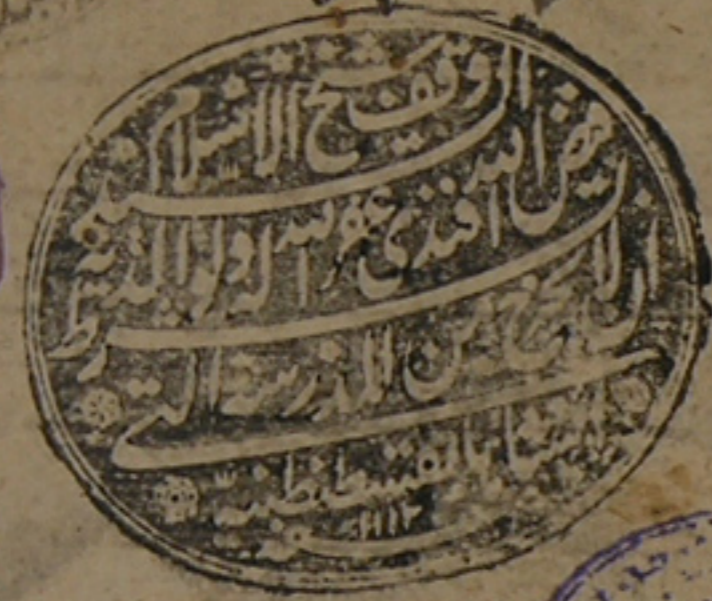 وقف شيخ الاسلام السيد
فيض الله افندى غفر الله له ولوالديه بشرط
ان لا يخرج من المدرسة التي
انشاها بقسطنطينيه
سنه ١١١٢